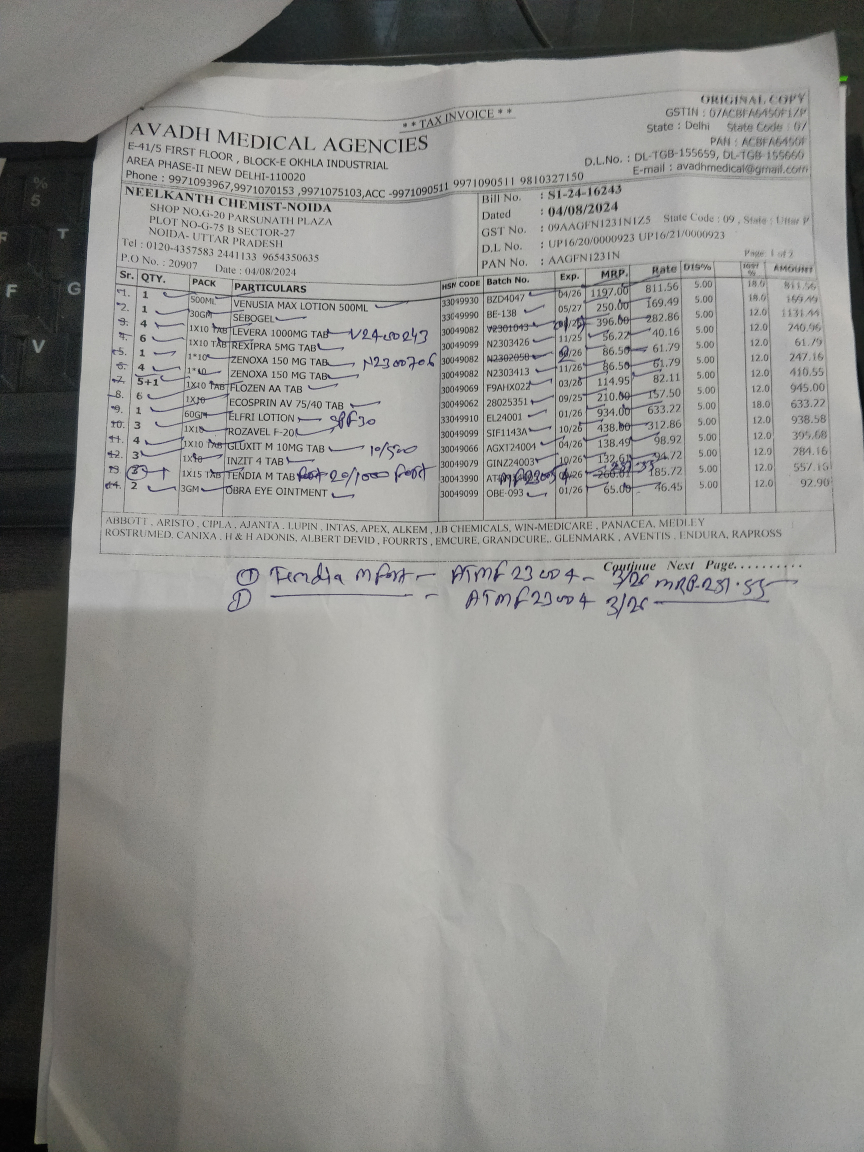 ORIGINAL COPY
* * TAX INVOICE * *
GSTIN : 07ACBFA6450F1ZP
AVADH MEDICAL AGENCIES
State : Delhi State Code : 07
E-41/5 FIRST FLOOR , BLOCK-E OKHLA INDUSTRIAL
PAN : ACBFA6450F
AREA PHASE-II NEW DELHI-110020
D.L.No. : DL-TGB-155659, DL-TGB-155660
Phone : 9971093967,9971070153 ,9971075103,ACC -9971090511 9971090511 9810327150
E-mail : avadhmedical@gmail.com
NEELKANTH CHEMIST-NOIDA
Bill No. : S1-24-16243
SHOP NO.G-20 PARSUNATH PLAZA
Dated : 04/08/2024
PLOT NO-G-75 B SECTOR-27
GST No. : 09AAGFN1231N1Z5 State Code : 09 , State : Uttar P
NOIDA- UTTAR PRADESH
D.L No. : UP16/20/0000923 UP16/21/0000923
Tel : 0120-4357583 2441133 9654350635
PAN No. : AAGFN1231N
P.O No. : 20907 Date : 04/08/2024
Page: 1 of 2
Sr. QTY. PACK PARTICULARS HSN CODE Batch No. Exp. MRP. Rate DIS% % AMOUNT
1. 1 500ML VENUSIA MAX LOTION 500ML 33049930 BZD4047 04/26 1197.00 811.56 5.00 18.0 811.56
2. 1 30GM SEBOGEL 33049990 BE-138 05/27 250.00 169.49 5.00 18.0 169.49
3. 4 1X10 TAB LEVERA 1000MG TAB V2400243 30049082 V2301043 396.00 282.86 5.00 12.0 1131.44
4. 6 1X10 TAB REXIPRA 5MG TAB 30049099 N2303426 11/25 56.22 40.16 5.00 12.0 240.96
5. 1 1*10 ZENOXA 150 MG TAB N2300706 30049082 N2302058 86.50 61.79 5.00 12.0 61.79
6. 4 1*10 ZENOXA 150 MG TAB 30049082 N2303413 11/26 86.50 61.79 5.00 12.0 247.16
7. 5+1 1X10 TAB FLOZEN AA TAB 30049069 F9AHX022 03/26 114.95 82.11 5.00 12.0 410.55
8. 6 1X10 ECOSPRIN AV 75/40 TAB 30049062 28025351 09/25 210.00 157.50 5.00 12.0 945.00
9. 1 60GM ELFRI LOTION SPF30 33049910 EL24001 01/26 934.00 633.22 5.00 18.0 633.22
10. 3 1X10 ROZAVEL F-20 30049099 SIF1143A 10/26 438.00 312.86 5.00 12.0 938.58
11. 4 1X10 TAB GLUXIT M 10MG TAB 10/500 30049066 AGXT24004 04/26 138.49 98.92 5.00 12.0 395.68
12. 3 1X10 INZIT 4 TAB 30049079 GINZ24003 10/26 132.61 94.72 5.00 12.0 284.16
13 1X15 TAB TENDIA M TAB 20/1000 Fort 30043990 185.72 5.00 12.0 557.16
14. 2 3GM OBRA EYE OINTMENT 30049099 OBE-093 01/26 65.00 46.45 5.00 12.0 92.90
ABBOTT , ARISTO , CIPLA , AJANTA , LUPIN , INTAS, APEX, ALKEM , J.B CHEMICALS, WIN-MEDICARE , PANACEA, MEDLEY
ROSTRUMED, CANIXA , H & H ADONIS, ALBERT DEVID , FOURRTS , EMCURE, GRANDCURE,. GLENMARK , AVENTIS , ENDURA, RAPROSS
Continue Next Page..........
① Tendia M Fort - ATMF23004 - 3/26 MRP-231.55
① - ATMF23004 3/26